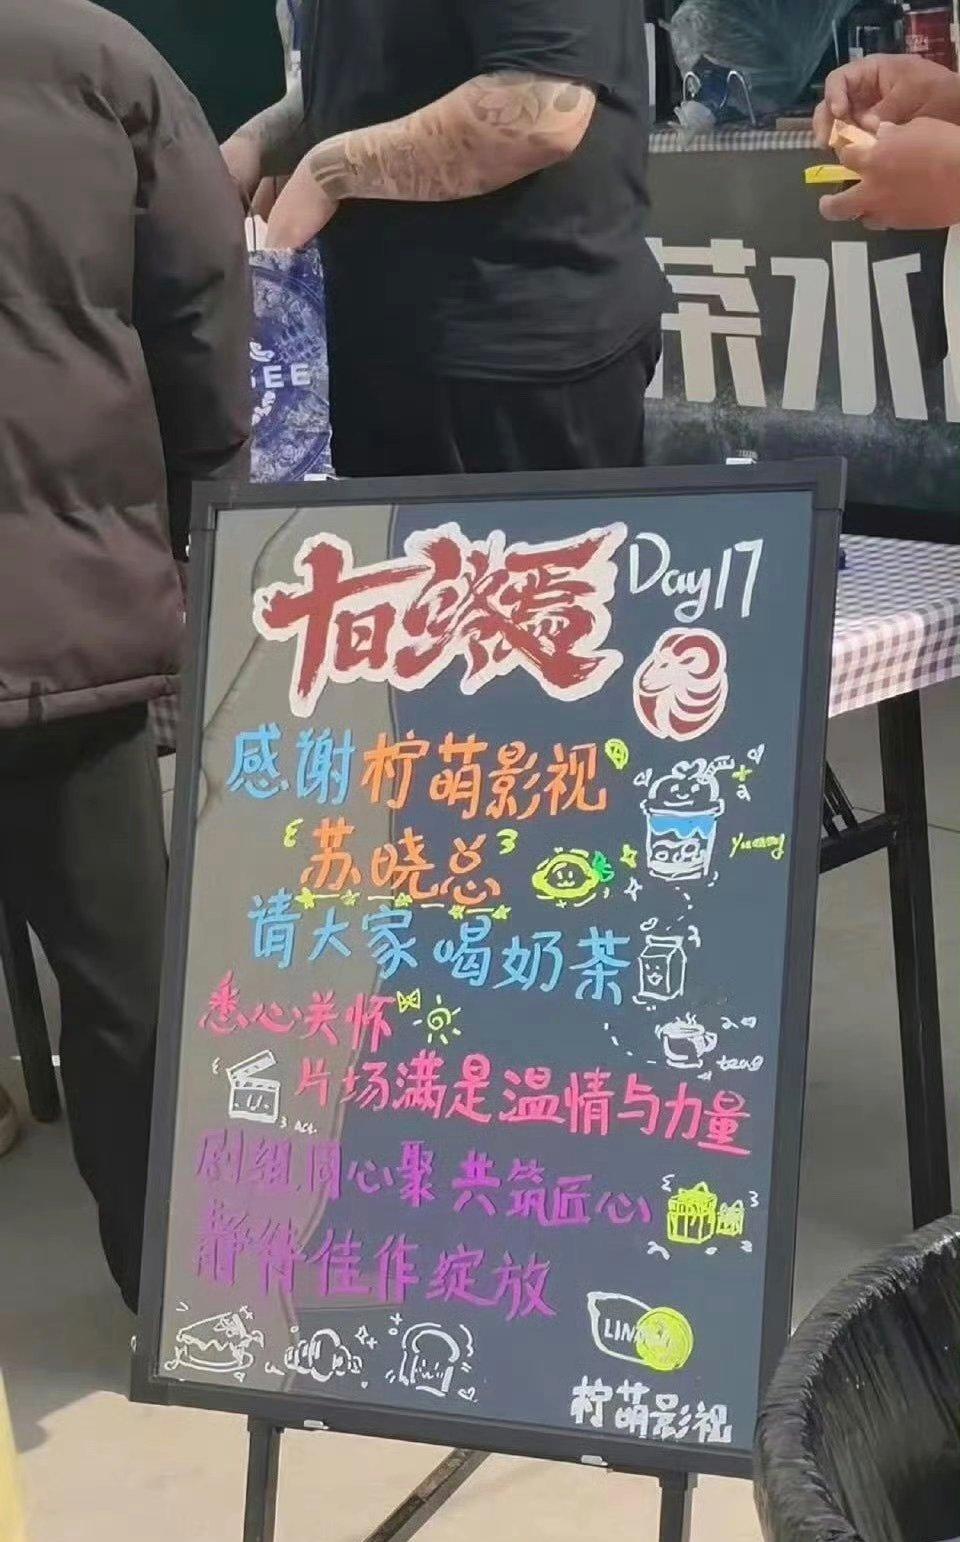 茶水
GEE
十日终焉 Day17
感谢柠萌影视
苏晓总
yummy
请大家喝奶茶
悉心关怀
片场满是温情与力量
act.
剧组同心聚 共筑匠心
静待佳作绽放
柠萌影视